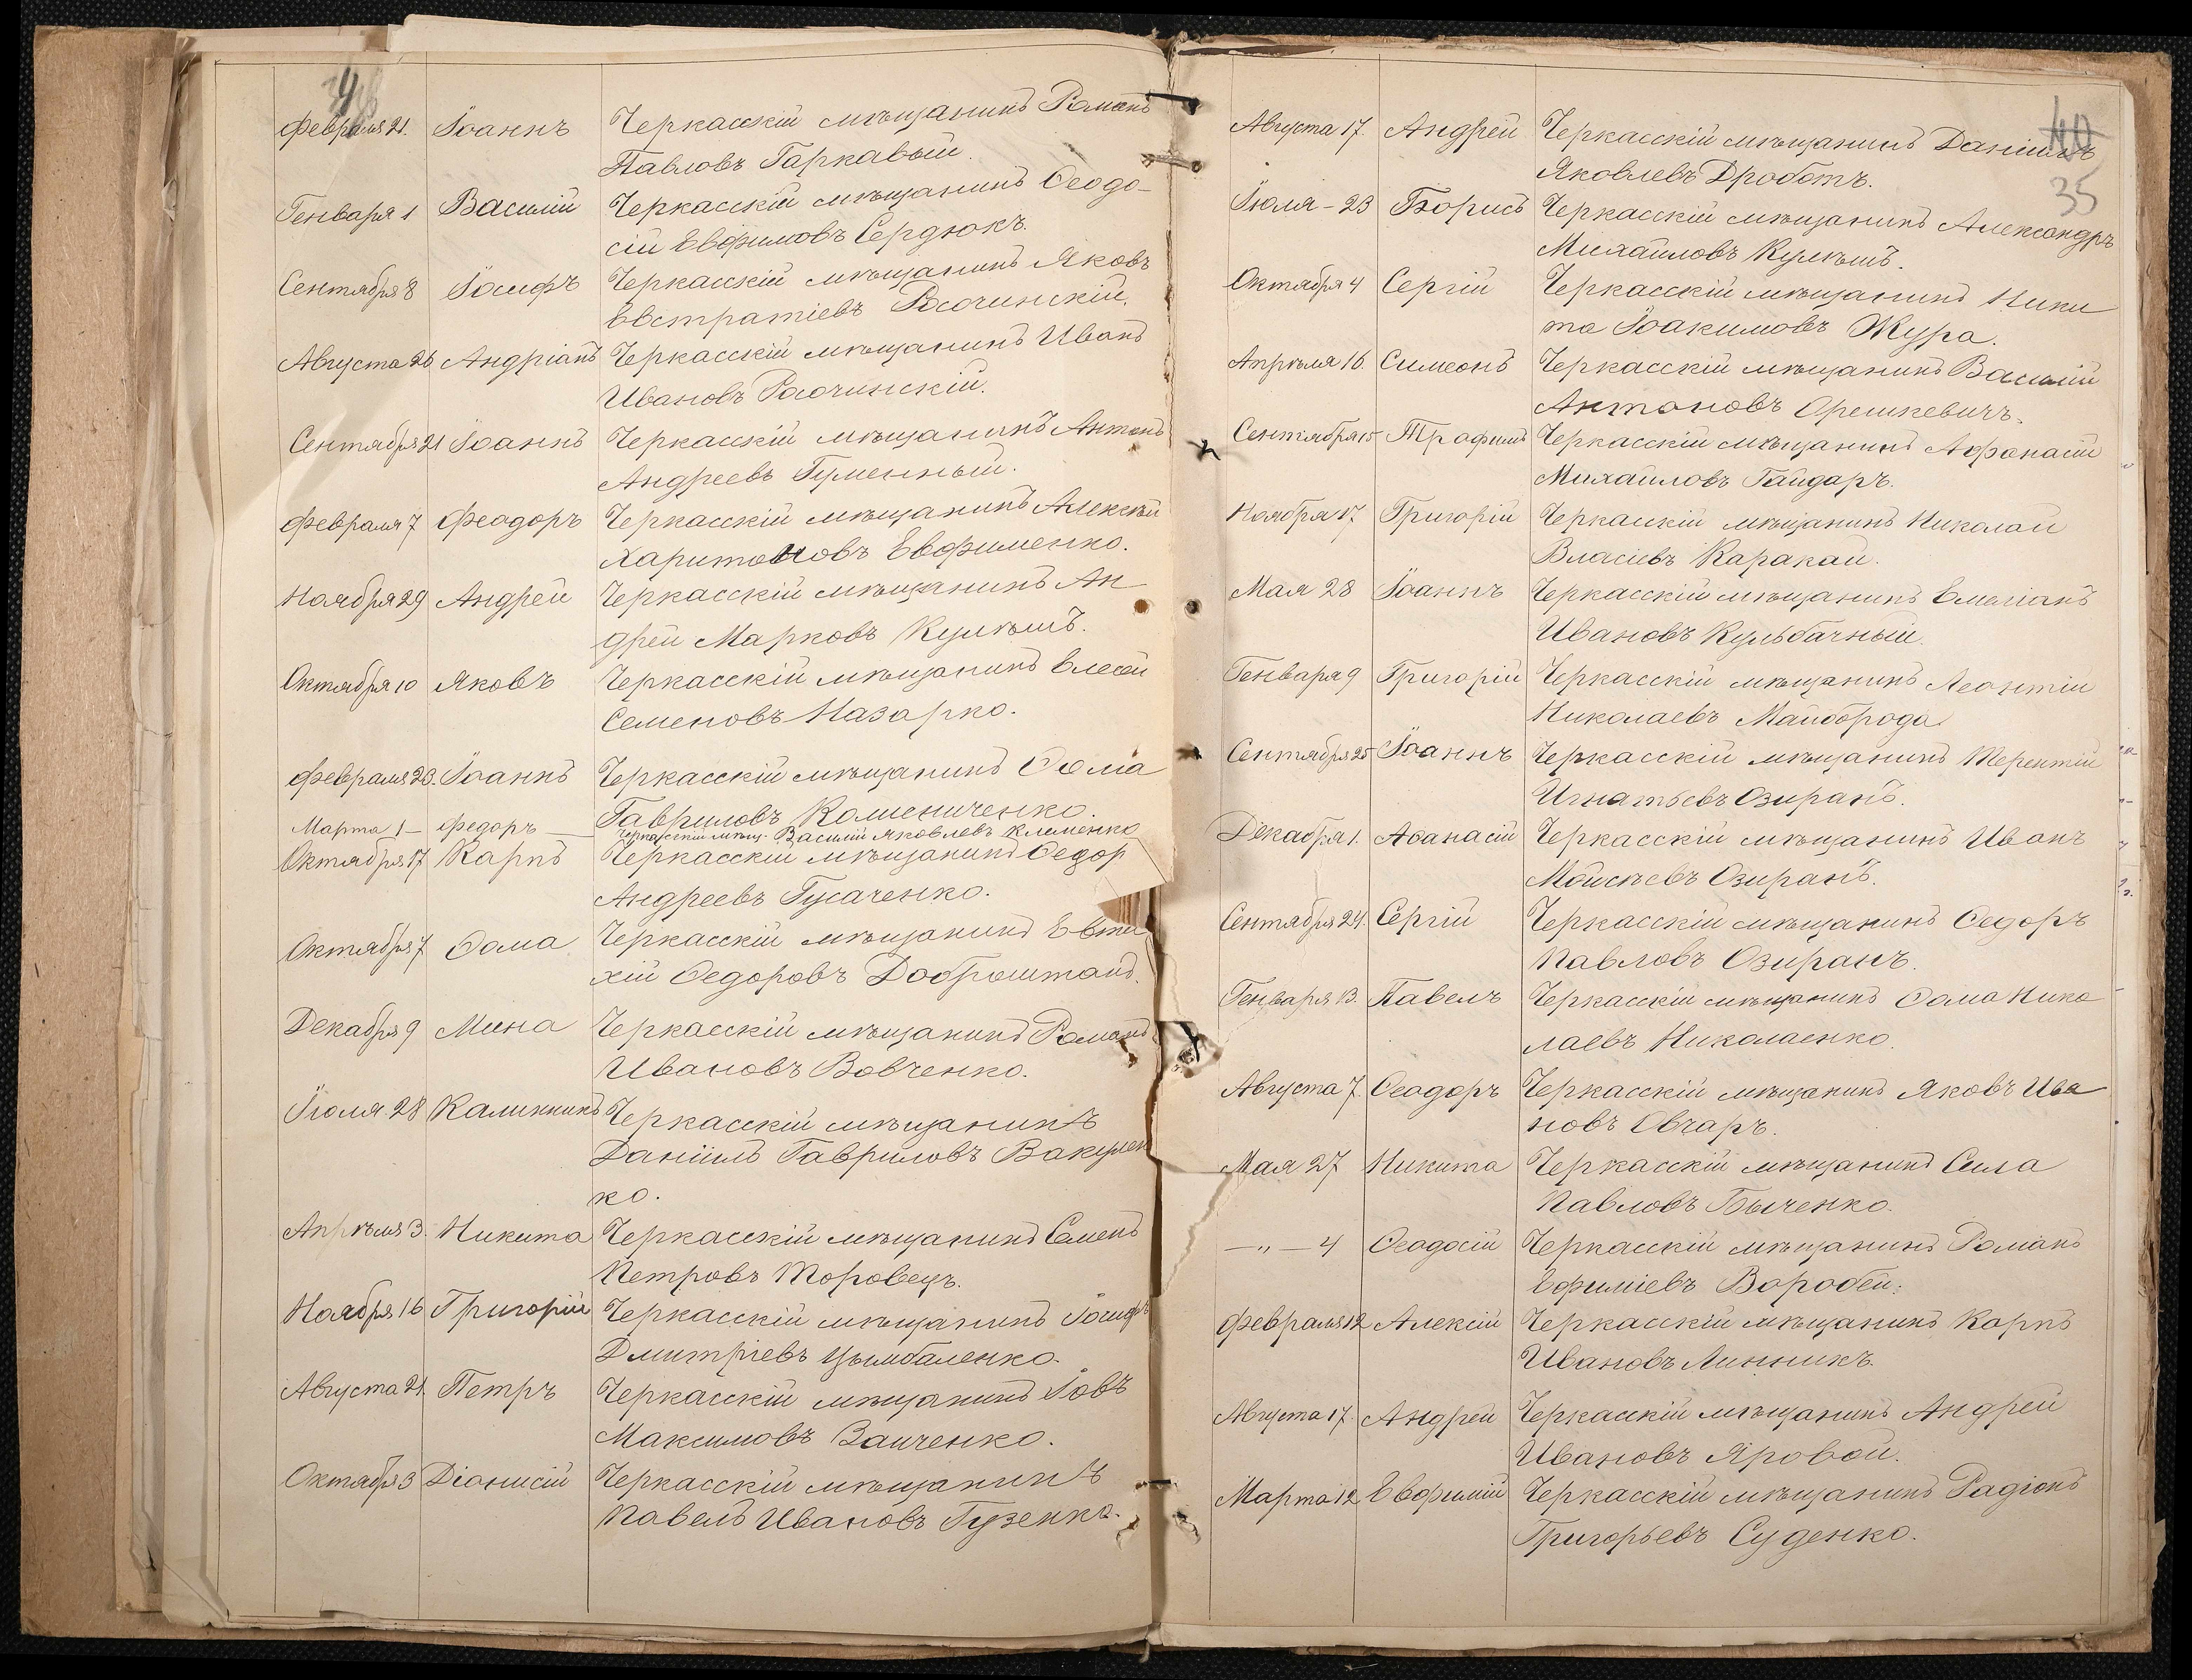 Февраля 21. Іоаннъ Черкасскій мѣщанинъ Романъ
Павловъ Гаркавый.
Генваря 1 Василій Черкасскій мѣщанинъ Ѳеодо-
сій Евфимовъ Сердюкъ.
Сентября 8 Іосифъ Черкасскій мѣщанинъ Яковъ
Евстратіевъ Росочинскій.
Августа 26 Андріанъ Черкасскій мѣщанинъ Иванъ
Ивановъ Росочинскій.
Сентября 21 Іоаннъ Черкасскій мѣщанинъ Антонъ
Андреевъ Гуменный.
Февраля 7 Феодоръ Черкасскій мѣщанинъ Алексѣй
Харитоновъ Евфименко.
Ноября 29 Андрей Черкасскій мѣщанинъ Ан
дрей Марковъ Кулѣшъ.
Октября 10 Яковъ Черкасскій мѣщанинъ Елесей
Семеновъ Назарко.
Февраля 20. Іоаннъ Черкасскій мѣщанинъ Ѳома
Гавриловъ Коменниченко.
Марта 1 — Федоръ — Черкасскій мѣщ. Василій Яковлевъ Клеменко
Октября 17 Карпъ Черкасскій мѣщанинъ Ѳедор
Андреевъ Гусаченко.
Октября 7 Ѳома Черкасскій мѣщанинъ Евти
хій Ѳедоровъ Доброштанъ.
Декабря 9 Мина Черкасскій мѣщанинъ Романъ
Ивановъ Вовченко.
Іюля 28 Калинникъ Черкасскій мѣщанинъ
Даніилъ Гавриловъ Вакулен
ко.
Апрѣля 3. Никита Черкасскій мѣщанинъ Семенъ
Петровъ Торовецъ.
Ноября 16 Григорій Черкасскій мѣщанинъ Іосифъ
Дмитріевъ Цымбаленко.
Августа 21. Петръ Черкасскій мѣщанинъ Іовъ
Максимовъ Заиченко.
Октября 3 Діонисій Черкасскій мѣщанинъ
Павелъ Ивановъ Гузенко.
40
35
Августа 17. Андрей Черкасскій мѣщанинъ Даніилъ
Яковлевъ Дроботъ.
Іюля - 23 Борисъ Черкасскій мѣщанинъ Александръ
Михайловъ Кулѣшъ.
Октября 4 Сергій Черкасскій мѣщанинъ Ники
та Іоакимовъ Жура.
Апрѣля 16. Симеонъ Черкасскій мѣщанинъ Василій
Антоновъ Орешкевичъ.
Сентября 15 Трофимъ Черкасскій мѣщанинъ Афонасій
Михайловъ Гайдаръ.
Ноября 17 Григорій Черкасскій мѣщанинъ Николай
Власіевъ Каракай.
Мая 28 Іоаннъ Черкасскій мѣщанинъ Емеліанъ
Ивановъ Кульбачный.
Генваря 9 Григорій Черкасскій мѣщанинъ Леонтій
Николаевъ Майборода.
Сентября 25 Іоаннъ Черкасскій мѣщанинъ Терентій
Игнатьевъ Озиранъ.
Декабря 1. Аѳанасій Черкасскій мѣщанинъ Иванъ
Мойсѣевъ Озиранъ.
Сентября 24. Сергій Черкасскій мѣщанинъ Ѳедоръ
Павловъ Озиранъ.
Генваря 13. Павелъ Черкасскій мѣщанинъ Ѳома Нико
лаевъ Николаенко.
Августа 7. Ѳеодоръ Черкасскій мѣщанинъ Яковъ Ива
новъ Овчаръ.
Мая 27 Никита Черкасскій мѣщанинъ Сила
Павловъ Быченко.
—„— 4 Ѳеодосій Черкасскій мѣщанинъ Романъ
Ефиміевъ Воробей.
Февраля 12 Алексій Черкасскій мѣщанинъ Карпъ
Ивановъ Линникъ.
Августа 17. Андрей Черкасскій мѣщанинъ Андрей
Ивановъ Яровой.
Марта 12 Евфимій Черкасскій мѣщанинъ Радіонъ
Григорьевъ Суденко.